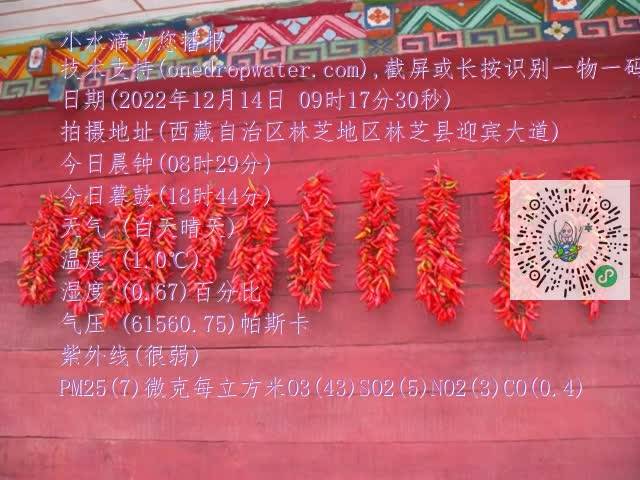 小水滴为您播报
技术支持(onedropwater.com),截屏或长按识别一物一码
日期(2022年12月14日 09时17分30秒)
拍摄地址(西藏自治区林芝地区林芝县迎宾大道)
今日晨钟(08时29分)
今日暮鼓(18时44分)
天气 (白天晴天)
温度 (1.0℃)
湿度 (0.67)百分比
气压 (61560.75)帕斯卡
紫外线(很弱)
PM25(7)微克每立方米O3(43)SO2(5)NO2(3)CO(0.4)